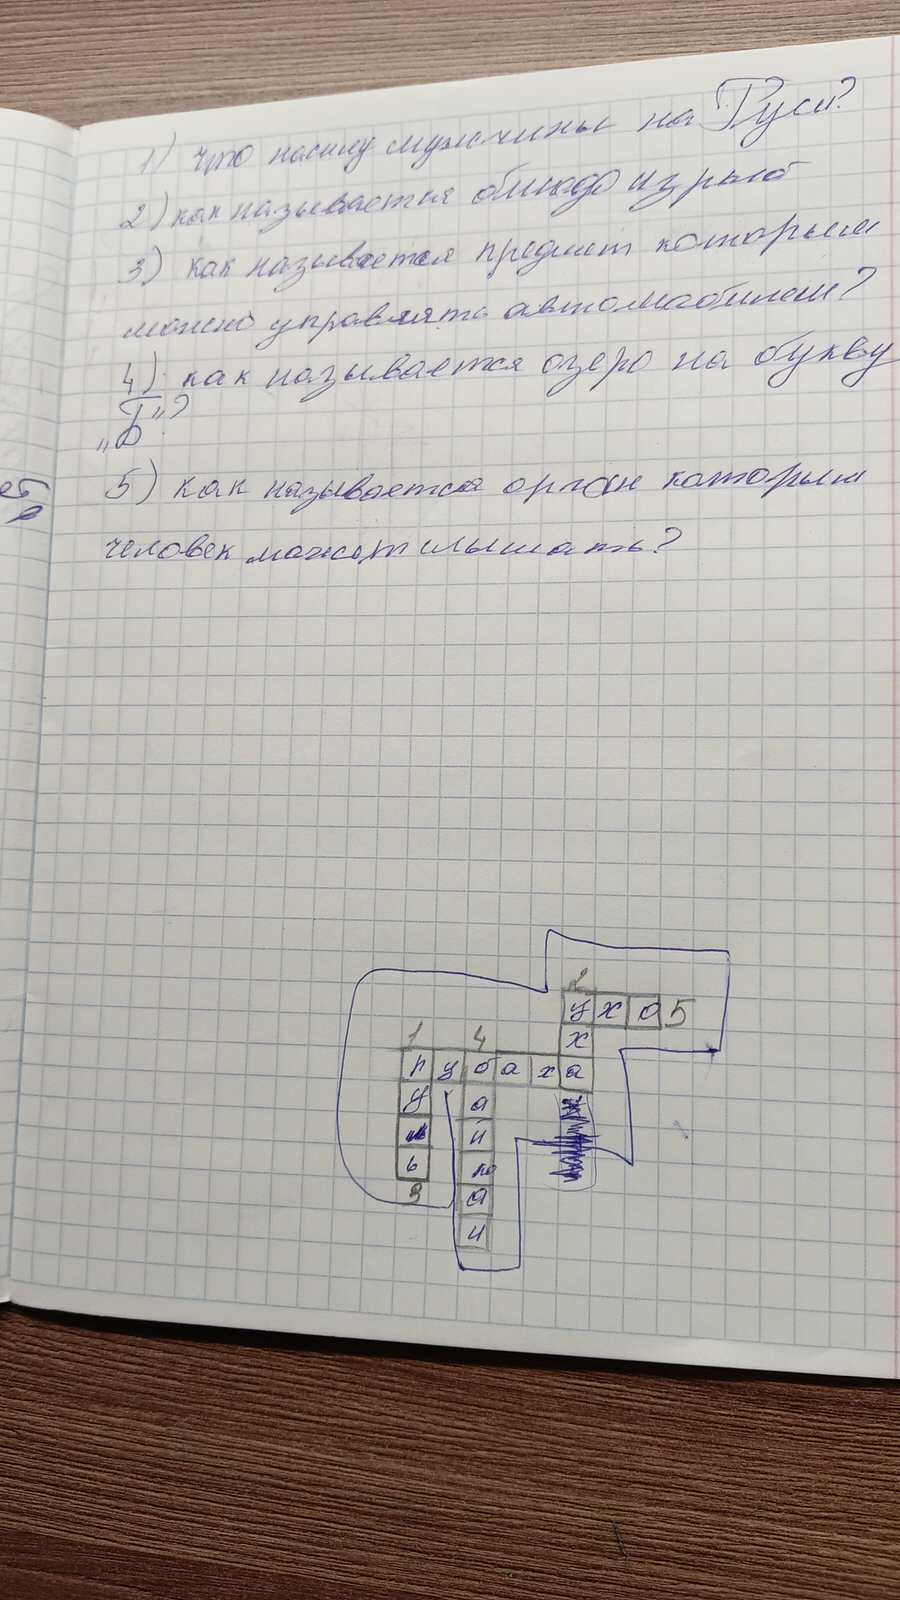 1) что насилу мужчины на Руси?
2) как называется блюдо из рыб
3) как называется предмет которым
можно управлять автомабилем?
4) как называется озеро на букву
„Б"?
5) как называется орган которым
человек может слышать?
2
у х о 5
1 4 х
р у б а х а
у а
л й
ь к
3 а
л